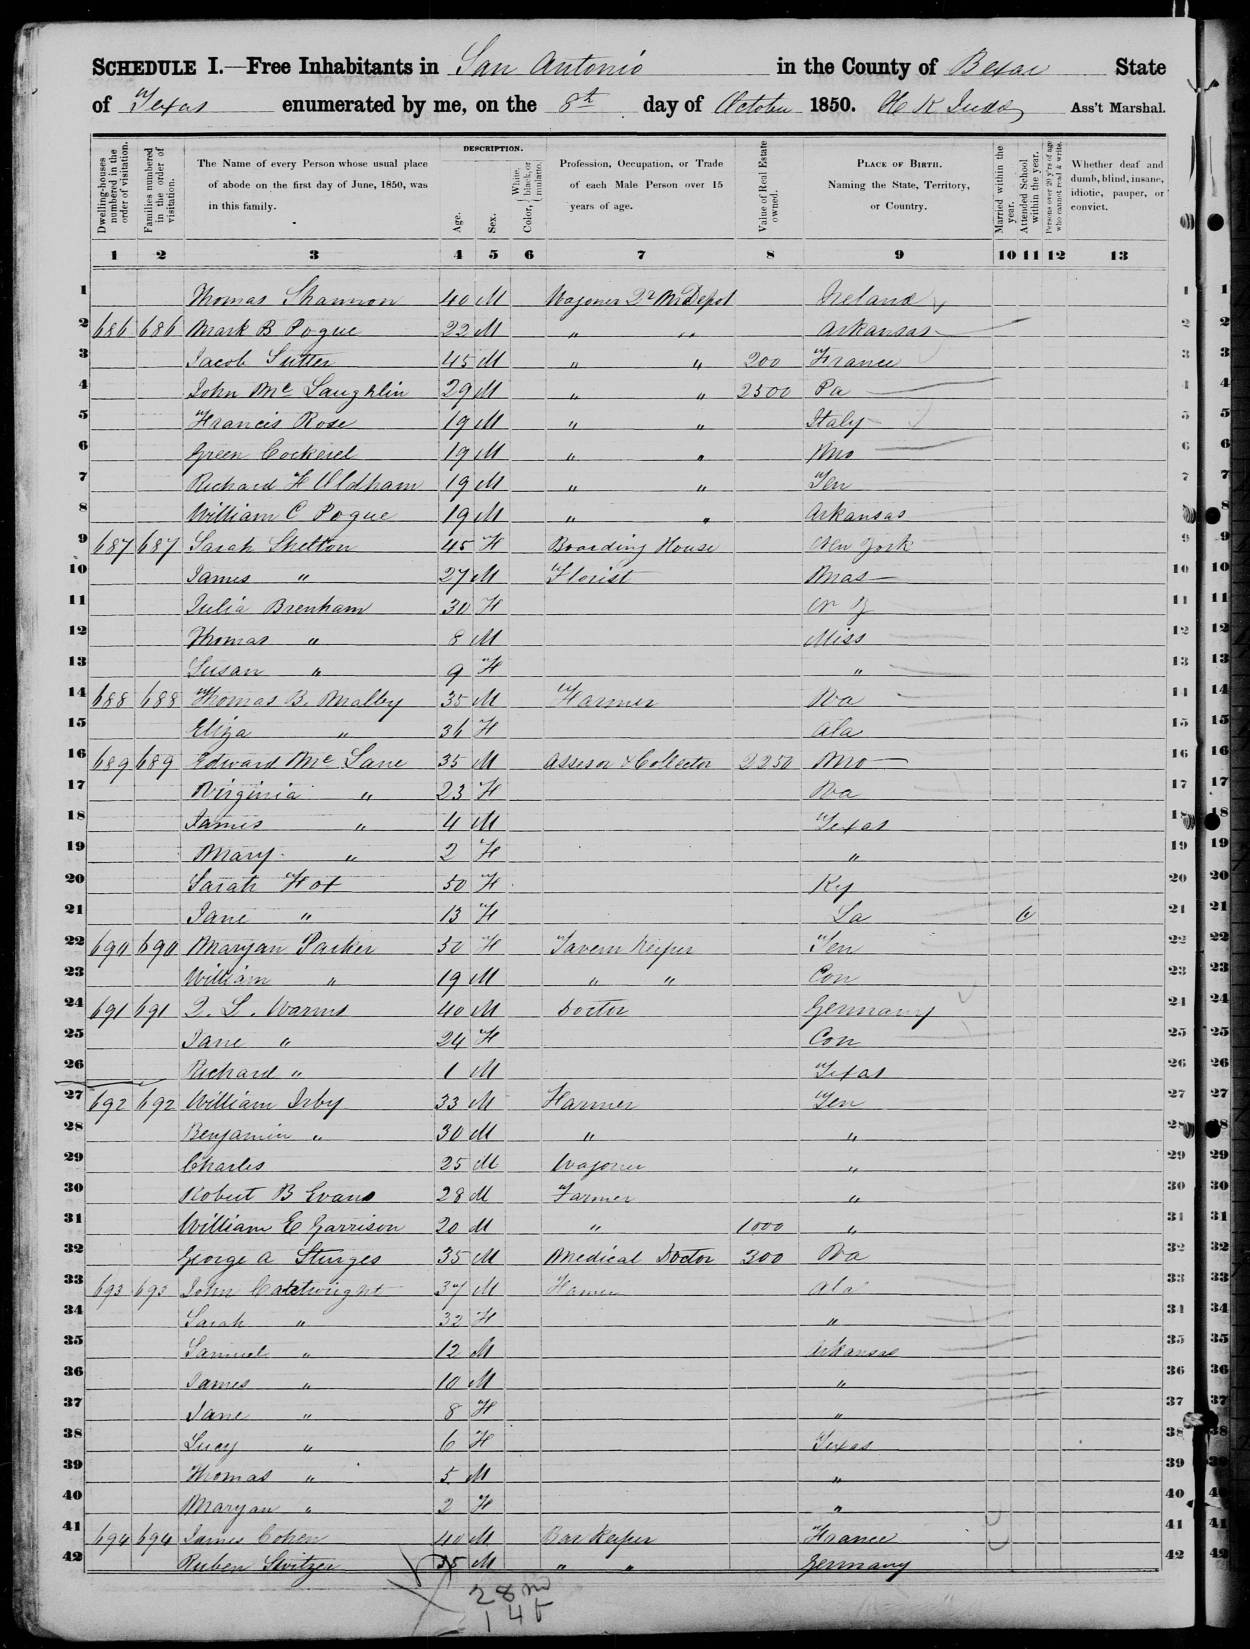 SCHEDULE I.—Free Inhabitants in San Antonio in the County of Bexar State
of Texas enumerated by me, on the 8th day of October 1850. Ass't Marshal.
Dwelling-houses numbered in the order of visitation.
Families numbered in the order of visitation.
The Name of every Person whose usual place of abode on the first day of June, 1850, was in this family.
DESCRIPTION.
Age.
Sex.
Color, { White, black, or mulatto.
Profession, Occupation, or Trade of each Male Person over 15 years of age.
Value of Real Estate owned.
PLACE OF BIRTH. Naming the State, Territory, or Country.
Married within the year.
Attended School within the year.
Persons over 20 y'rs of age who cannot read & write.
Whether deaf and dumb, blind, insane, idiotic, pauper, or convict.
1 2 3 4 5 6 7 8 9 10 11 12 13
1 Thomas Shannon 40 M Wagoner Qr Mr Depot Ireland 1 1
2 686 686 Mark B Pogue 22 M " " Arkansas 2 2
3 Jacob Sutter 45 M " " 200 France 3 3
4 John Mc Laughlin 29 M " " 2500 Pa 4 4
5 Francis Rose 19 M " " Italy 5 5
6 Green Cockriel 19 M " " Mo 6 6
7 Richard F Oldham 19 M " " Ten 7 7
8 William C Pogue 19 M " " Arkansas 8 8
9 687 687 Sarah Skelton 45 F Boarding House New York 9 9
10 James " 27 M Florist Mas 10 10
11 Julia Brenham 30 F N Y 11 11
12 Thomas " 8 M Miss 12 12
13 Susan " 9 F " 13 13
14 688 688 Thomas B. Malby 35 M Farmer Va 14 14
15 Eliza " 36 F Ala 15 15
16 689 689 Edward Mc Lane 35 M Assesor & Collector 2250 Mo 16 16
17 Virginia " 23 F Va 17 17
18 James " 4 M Texas 18 18
19 Mary " 2 F " 19 19
20 Sarah Fox 50 F Ky 20 20
21 Jane " 13 F La 21 21
22 690 690 Maryan Parker 50 F Tavern Keeper Ten 22 22
23 William " 19 M " " Con 23 23
24 691 691 L. Warms 40 M Doctor Germany 24 24
25 Jane " 24 F Con 25 25
26 Richard " 1 M Texas 26 26
27 692 692 William Irby 33 M Farmer Ten 27 27
28 Benjamin " 30 M " " 28 28
29 Charles 25 M Wagoner " 29 29
30 Robert B Evans 28 M Farmer " 30 30
31 William E Garrison 20 M " 1000 " 31 31
32 George A Sturges 35 M Medical Doctor 300 Va 32 32
33 693 693 John Cartwright 37 M Farmer Ala 33 33
34 Sarah " 32 F " 34 34
35 Samuel " 12 M Arkansas 35 35
36 James " 10 M " 36 36
37 Jane " 8 F " 37 37
38 Lucy " 6 F Texas 38 38
39 Thomas " 5 M " 39 39
40 Maryan " 2 F " 40 40
41 694 694 James Cohen 40 M Bar Keeper France 41 41
42 Ruben Switzer 35 M " " Germany 42 42
28
14